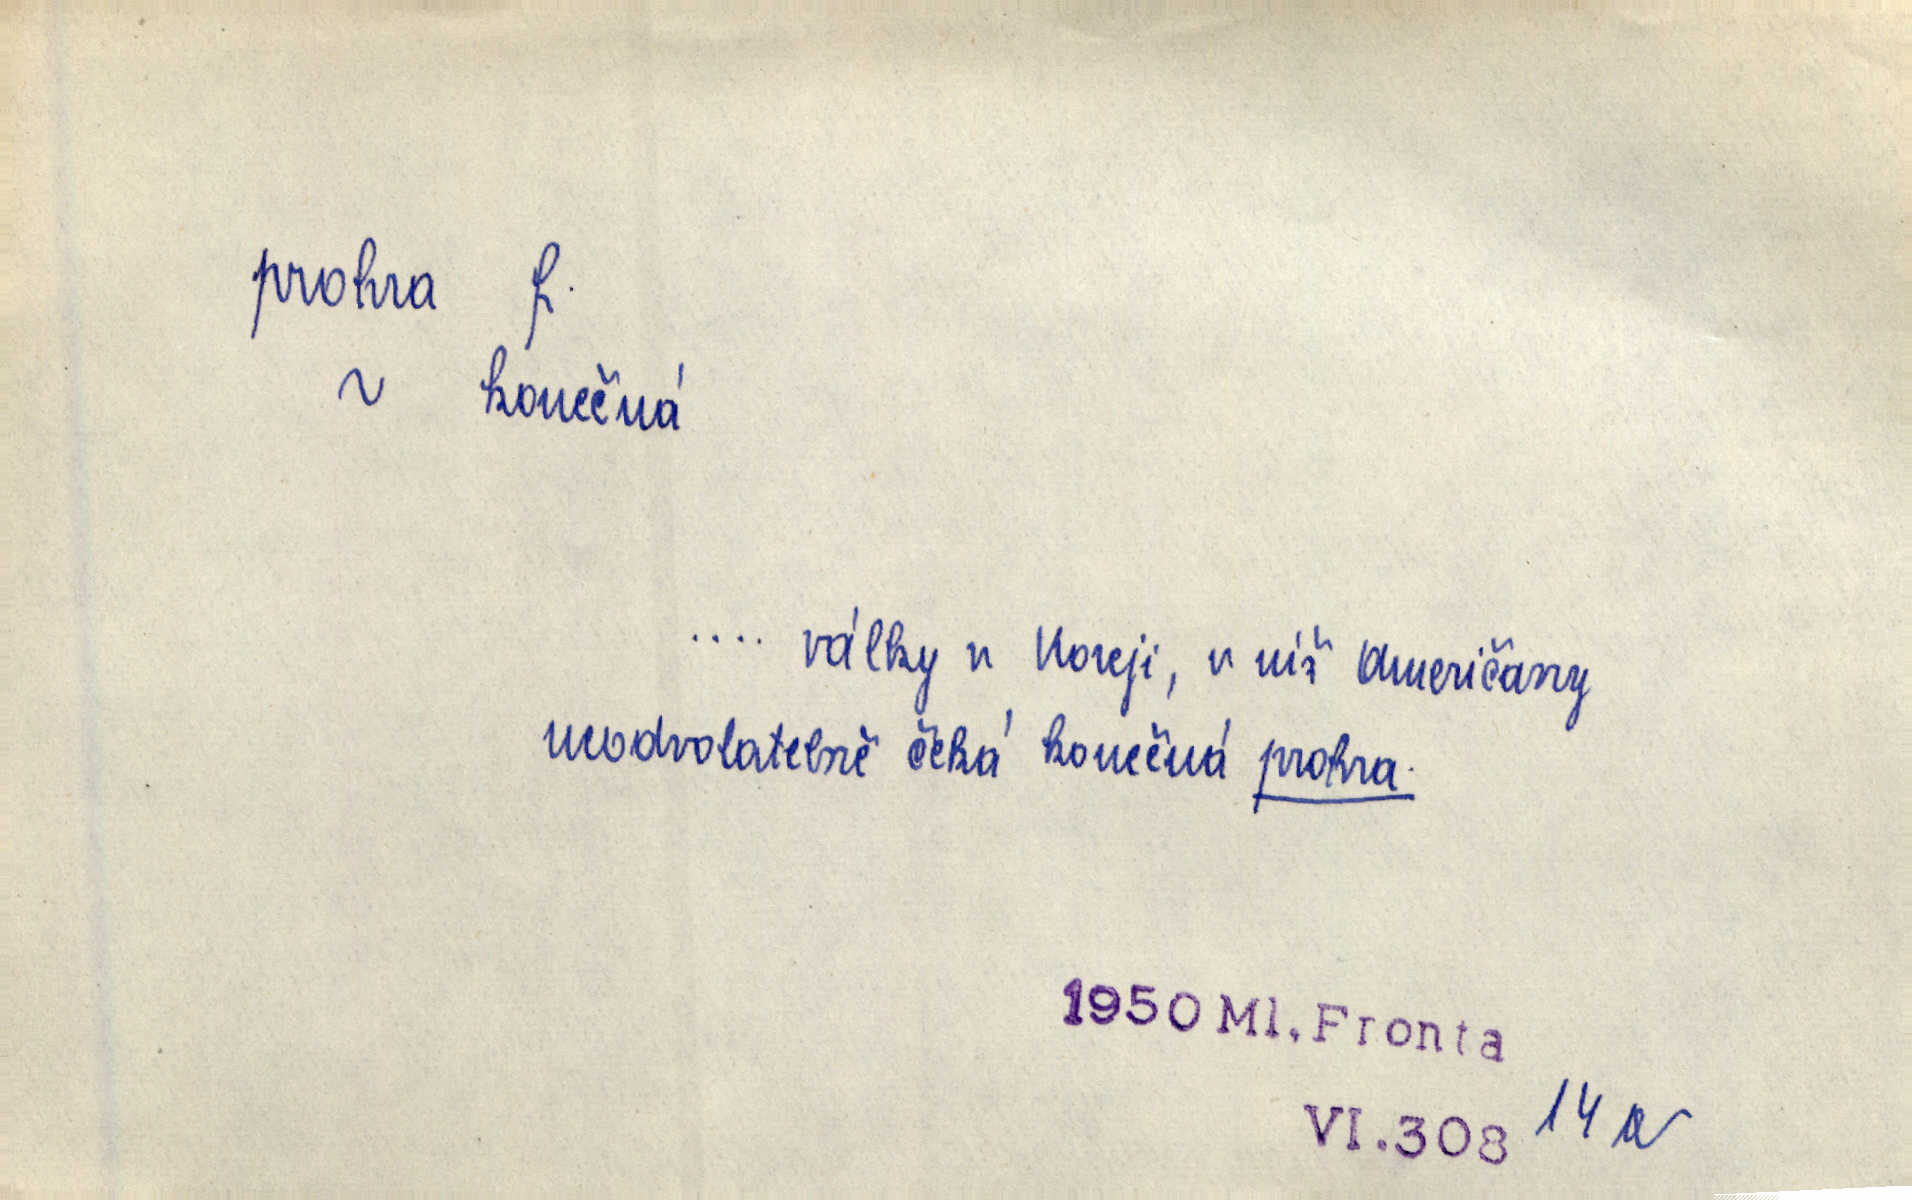 prohra f.
~ konečná
.... války v Koreji, v níž Američany
neodvolatelně čeká konečná prohra.
1950 Ml. Fronta
VI.308 14